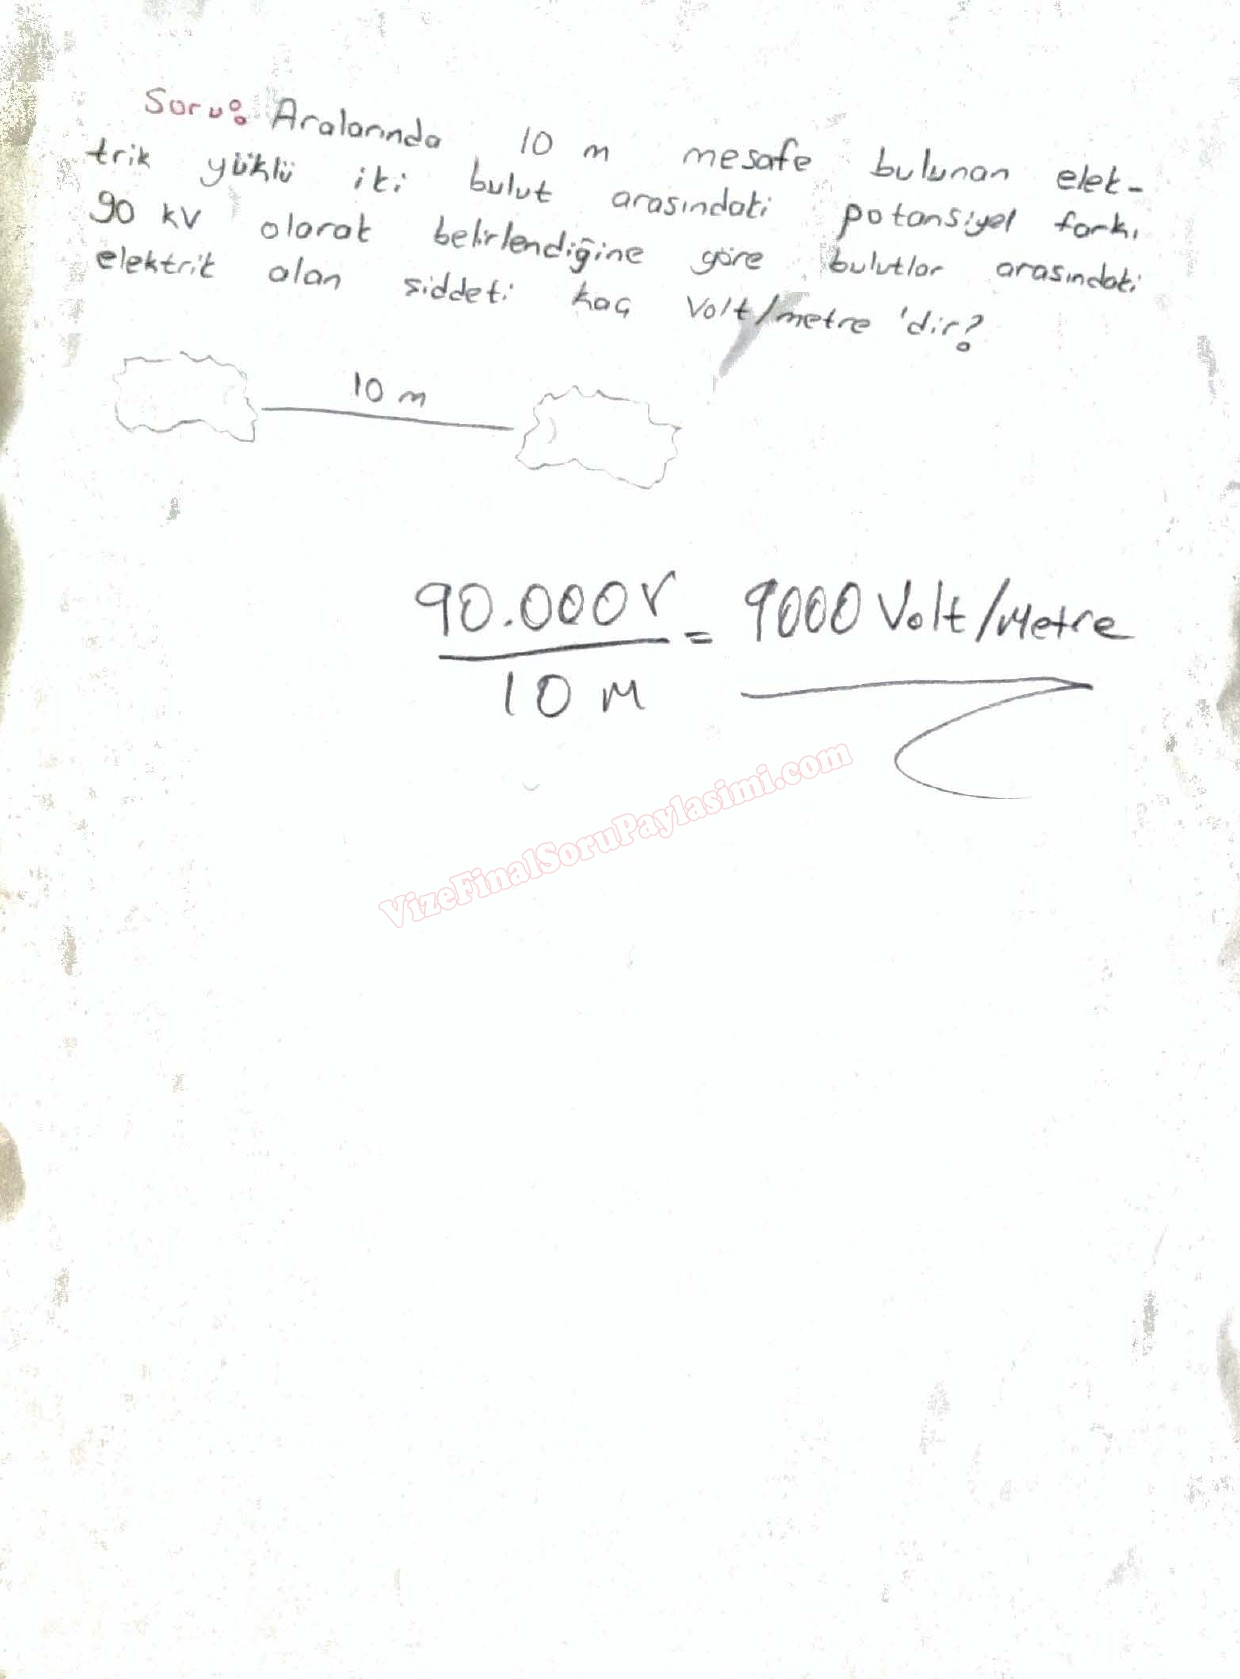 Soru: Aralarında 10 m mesafe bulunan elek-
trik yüklü iki bulut arasındaki potansiyel farkı
90 kV olarak belirlendiğine göre bulutlar arasındaki
elektrik alan şiddeti kaç Volt/metre 'dir?
10 m
90.000V = 9000 Volt/Metre
10 M
VizeFinalSoruPaylasimi.com